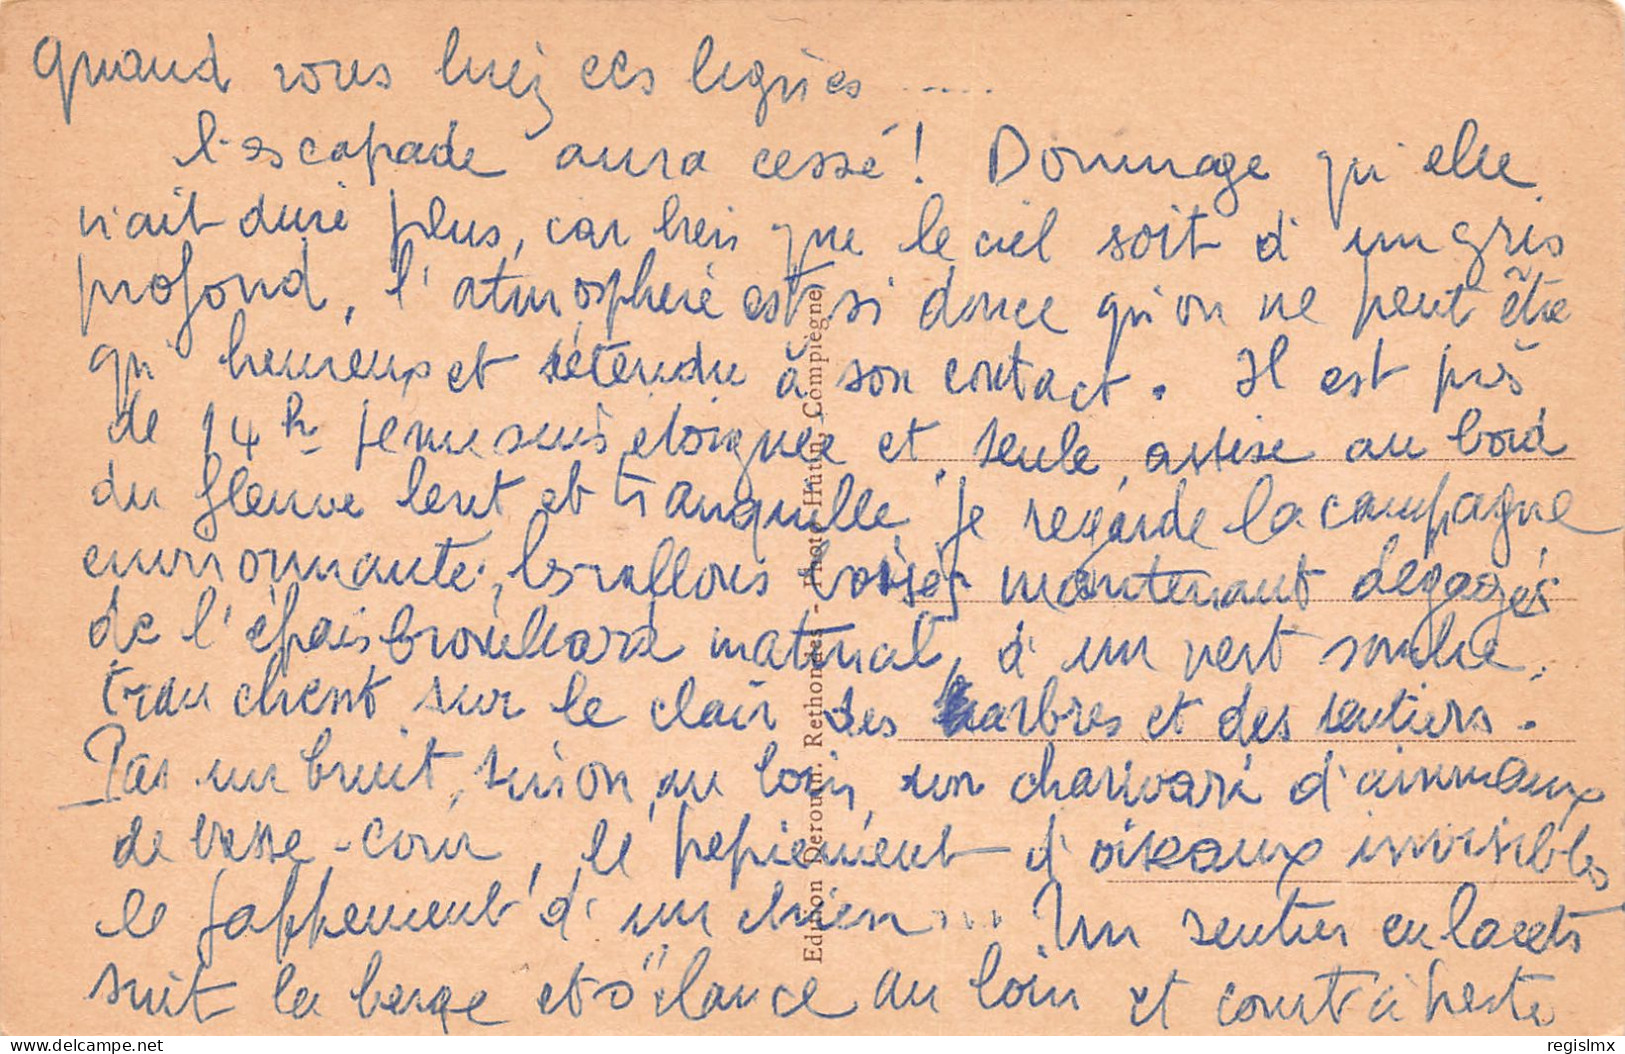 Quand vous lirez ces lignes .....
l'escapade aura cessé ! Dommage qu'elle
n'ait duré plus, car bien que le ciel soit d'un gris
profond, l'atmosphère est si douce qu'on ne peut être
qu'heureux et détendu à son contact. Il est près
de 14h je me suis éloignée et, seule, assise au bord
du fleuve lent et tranquille, je regarde la campagne
environnante, les vallons boisés maintenant dégagés
de l'épais brouillard matinal, d'un vert sombre,
tranchent sur le clair des arbres et des sentiers.
Pas un bruit, sinon, au loin, un charivari d'animaux
de basse-cour, le pépiement d'oiseaux invisibles
le jappement d'un chien ... Un sentier en lacets
suit la berge et s'élance au loin et court à perte
Edition Derouin. Rethondes - Photo Hutin, Compiègne
regislmx
delcampe.net